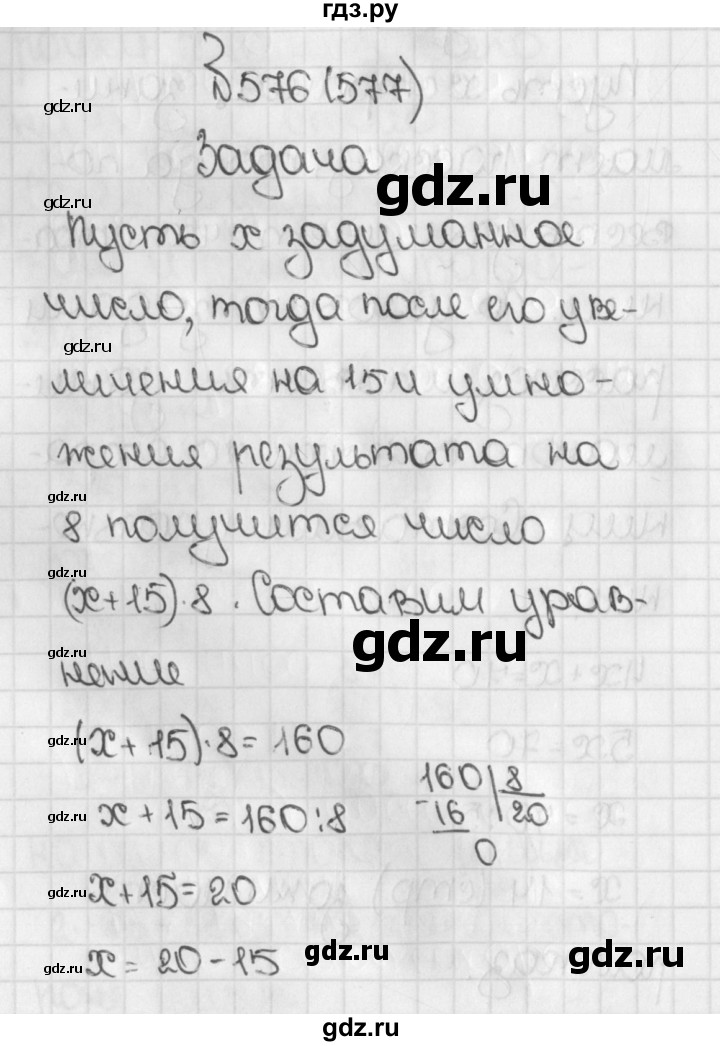 гдз.ру
№576 (577)
gdz.ru
Задача
gdz.ru
gdz.ru
Пусть x задуманное
число, тогда после его уве-
gdz.ru
личения на 15 и умно-
жения результата на
gdz.ru
8 получится число
gdz.ru
(x+15)·8. Составим урав-
gdz.ru
gdz.ru
нение
(x+15)·8=160
gdz.ru
160 8
x+15=160:8
-16 20
gdz.ru
0
x+15=20
gdz.ru
x=20-15
gdz.ru
gdz.ru
gdz.ru
gdz.ru